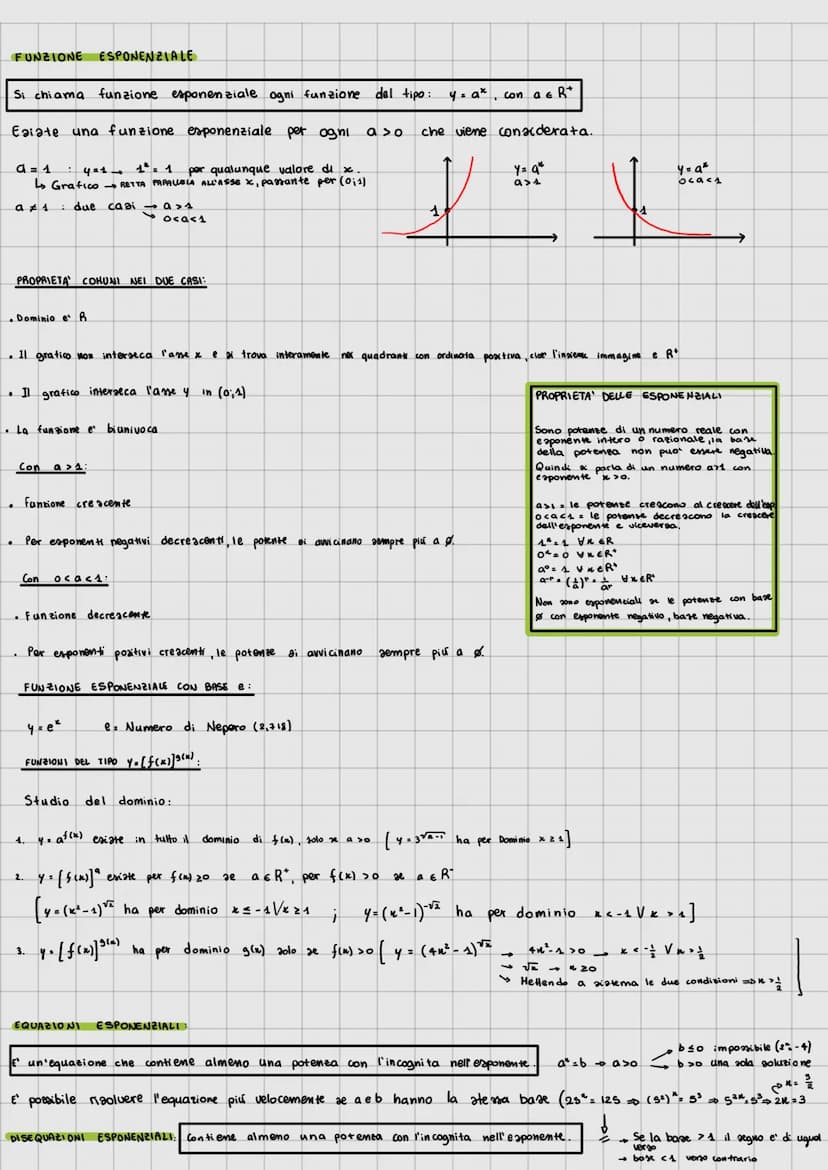 FUNZIONE ESPONENZIALE
Si chiama funzione esponenziale ogni funzione del tipo: y = aˣ, con a ∈ R⁺
Esiste una funzione esponenziale per ogni a > 0 che viene considerata.
a = 1 : y=1 → 1ˣ = 1 per qualunque valore di x.
↳ Grafico → RETTA PARALLELA ALL'ASSE X, passante per (0;1)
a ≠ 1 : due casi → a > 1
↘ 0<a<1
y = aˣ
a>1
1
y = aˣ
0<a<1
1
PROPRIETA' COMUNI NEI DUE CASI:
• Dominio e' R
• Il grafico non interseca l'asse x e si trova interamente nei quadranti con ordinata positiva, cioe' l'insieme immagine e R⁺
• Il grafico interseca l'asse y in (0;1)
• La funzione e' biunivoca
Con a > 1:
• Funzione crescente
• Per esponenti negativi decrescenti, le potenze si avvicinano sempre piú a 0.
Con 0<a<1:
• Funzione decrescente
• Per esponenti positivi crescenti, le potenze si avvicinano sempre piú a 0.
PROPRIETA' DELLE ESPONENZIALI
Sono potenze di un numero reale con
esponente intero o razionale, la base
della potenza non puo' essere negativa.
Quindi si parla di un numero a>1 con
esponente x>0.
a>1 = le potenze crescono al crescere dell'esp
0<a<1 = le potenze decrescono la crescere
dell'esponente e viceversa.
1ˣ = 1 ∀x∈R
0ˣ = 0 ∀x∈R⁺
a⁰ = 1 ∀x∈R⁺
a⁻ʳ = (1/a)ʳ = 1/aʳ ∀x∈R⁺
Non sono esponenziali se le potenze con base
0 con esponente negativo, base negativa.
FUNZIONE ESPONENZIALE CON BASE e:
y = eˣ e = Numero di Nepero (2,718)
FUNZIONI DEL TIPO y=[f(x)]^g(x):
Studio del dominio:
1. y = a^f(x) esiste in tutto il dominio di f(x), solo se a>0 [y = 3^√(x-1) ha per Dominio x ≥ 1]
2. y = [f(x)]^a esiste per f(x) ≥ 0 se a ∈ R⁺, per f(x) > 0 se a ∈ R⁻
[y = (x²-1)^√2 ha per dominio x ≤ -1 ∨ x ≥ 1 ; y = (x²-1)^-√2 ha per dominio x < -1 ∨ x > 1]
3. y = [f(x)]^g(x) ha per dominio g(x) solo se f(x) > 0 [y = (4x²-1)^√x → 4x²-1 > 0 → x < -1/2 ∨ x > 1/2
→ √x → x ≥ 0
↘ Mettendo a sistema le due condizioni ⇒ x > 1/2]
EQUAZIONI ESPONENZIALI:
E' un'equazione che contiene almeno una potenza con l'incognita nell'esponente. aˣ = b → a>0
b ≤ 0 impossibile (2ˣ = -4)
b > 0 una sola soluzione
E' possibile risolvere l'equazione piú velocemente se a e b hanno la stessa base (25ˣ = 125 ⇒ (5²)ˣ = 5³ ⇒ 5²ˣ = 5³ ⇒ 2x = 3
x = 3/2
DISEQUAZIONI ESPONENZIALI: Contiene almeno una potenza con l'incognita nell'esponente.
→ Se la base > 1 il segno e' di ugual
verso
→ base < 1 verso contrario